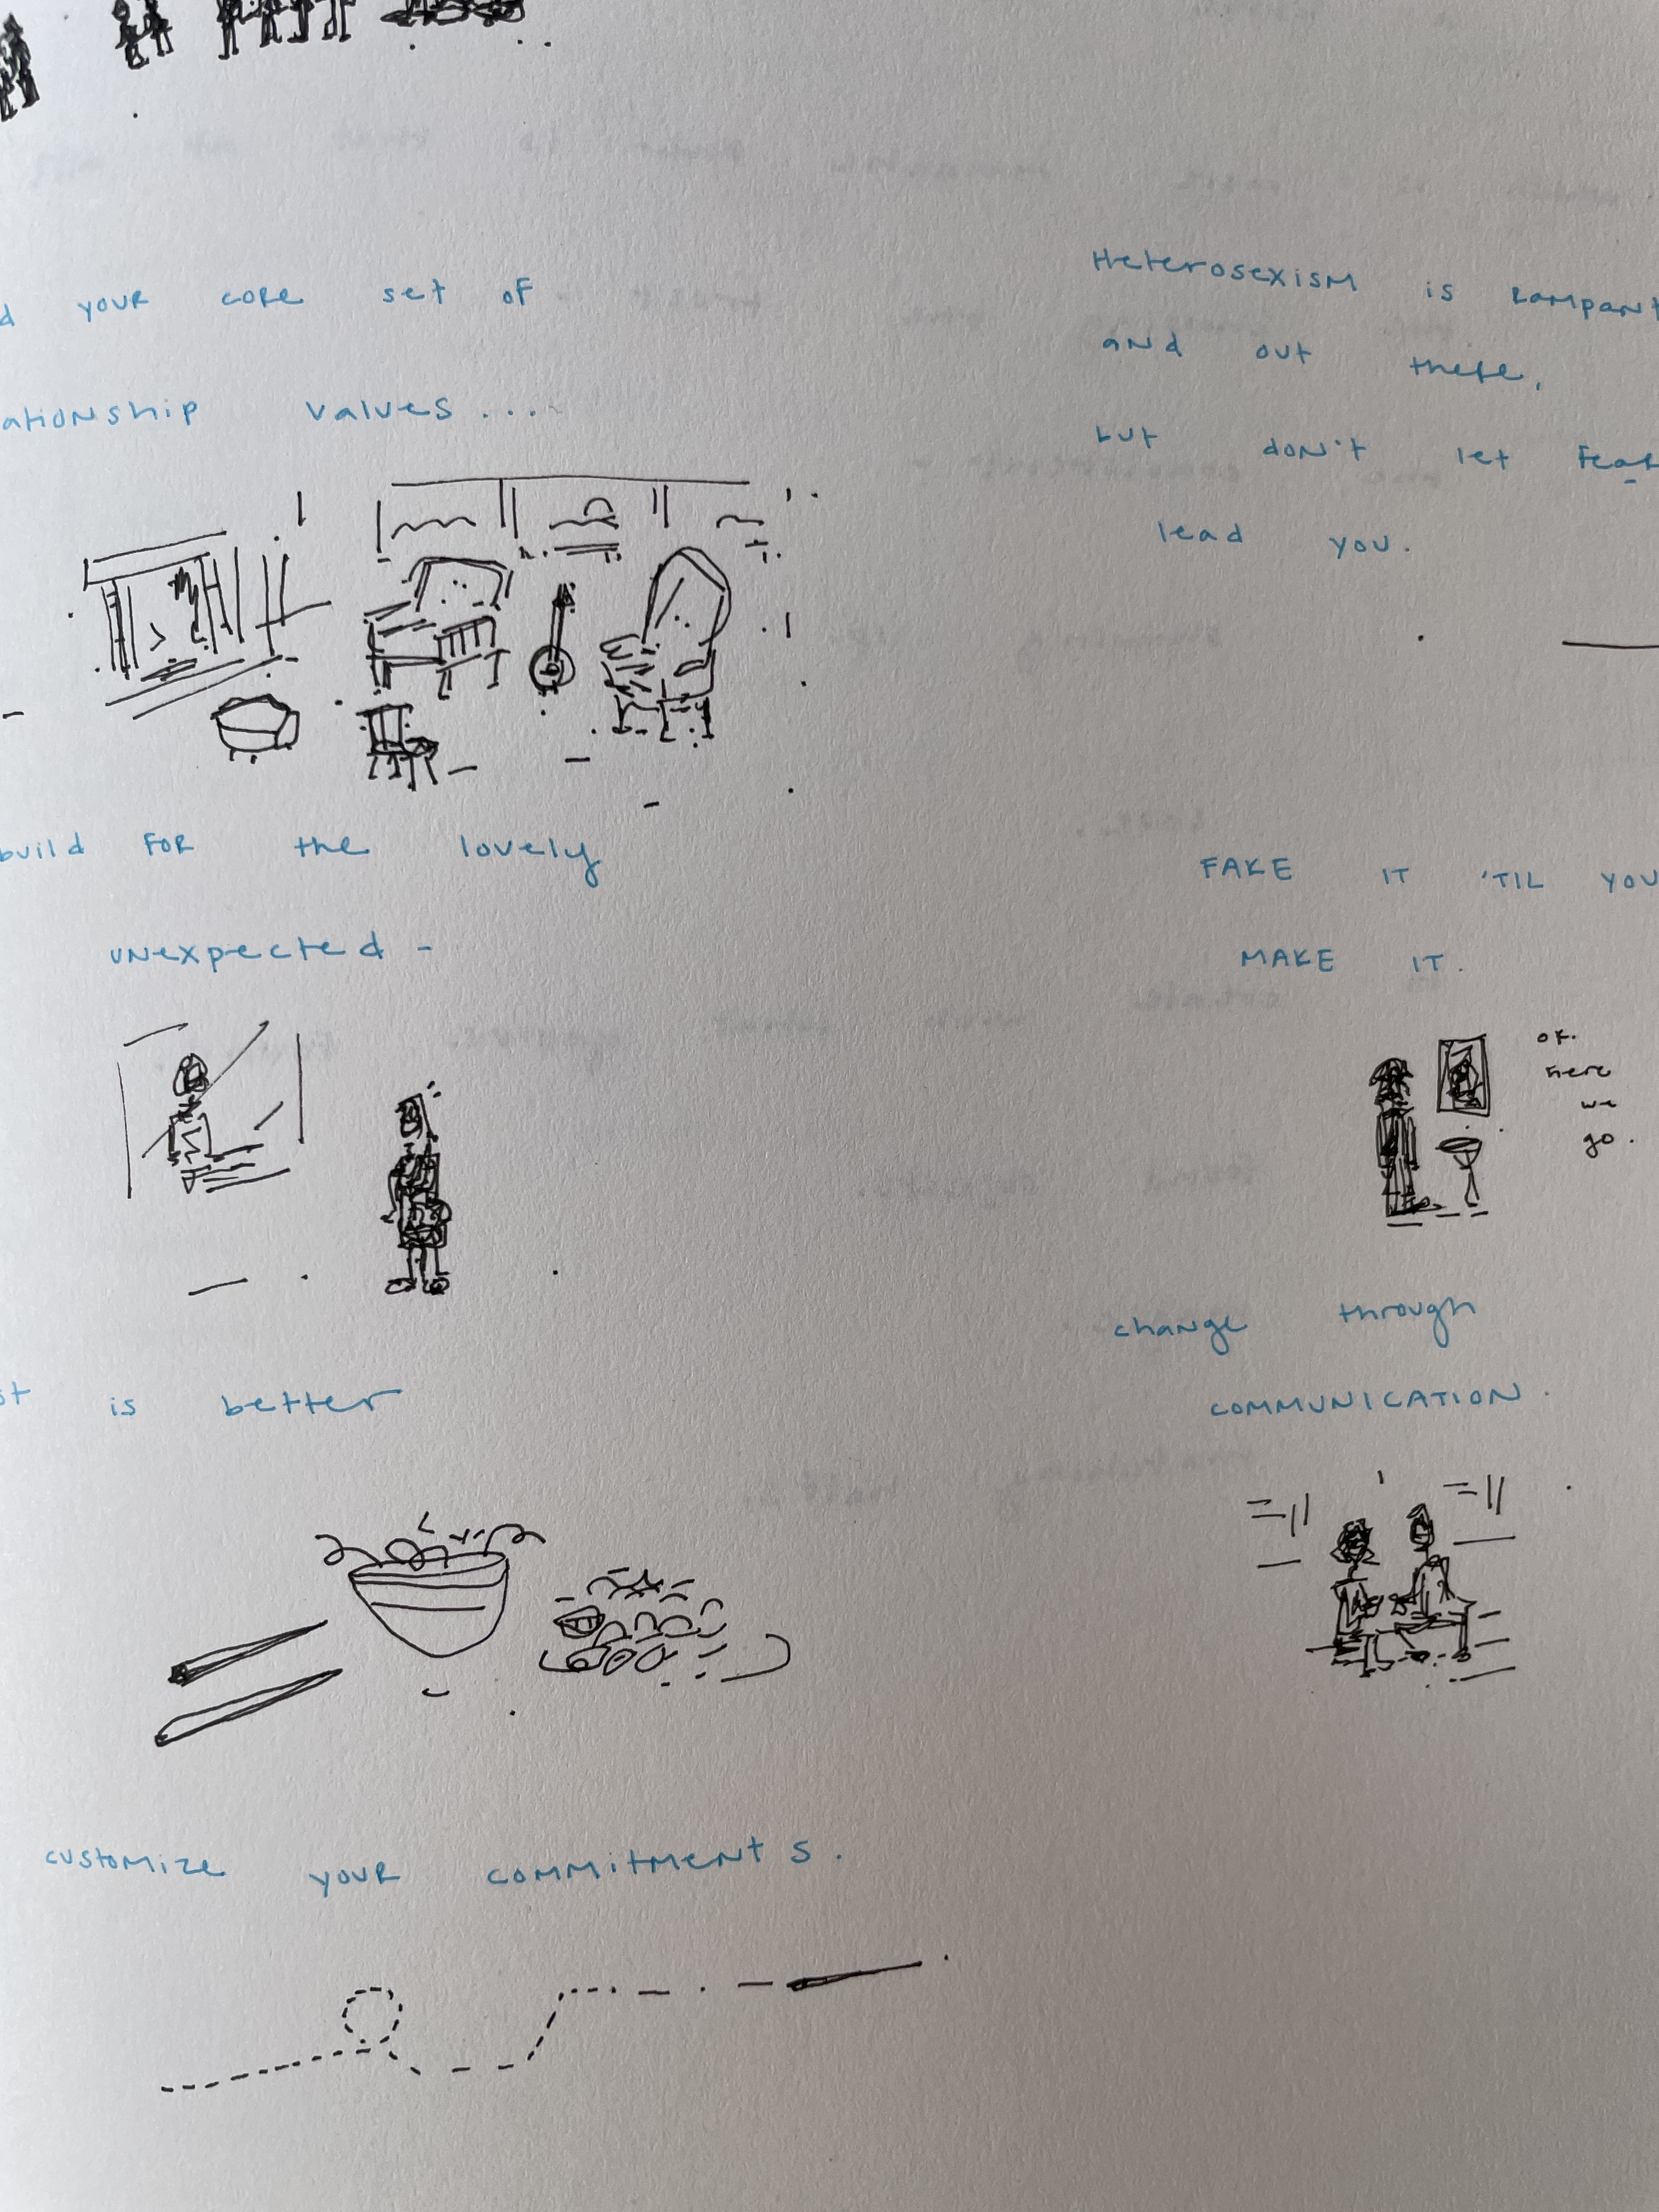 d your core set of
ationship values....
build for the lovely
unexpected -
st is better
customize your commitments.
Heterosexism is rampant
and out there,
but don't let fear
lead you.
FAKE IT 'TIL YOU
MAKE IT.
ok.
here
we
go.
change through
COMMUNICATION.